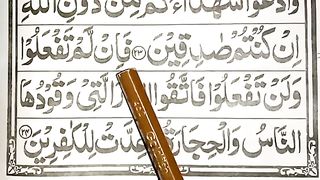 وَادْعُوا شُهَدَآءَكُمْ مِّنْ دُوْنِ اللّٰهِ
اِنْ كُنْتُمْ صٰدِقِيْنَ ﴿۲۳﴾ فَاِنْ لَّمْ تَفْعَلُوْا
وَلَنْ تَفْعَلُوْا فَاتَّقُوا الَّتِيْ وَقُوْدُهَا
النَّاسُ وَالْحِجَارَةُ لِلْكٰفِرِيْنَ ﴿۲۴﴾